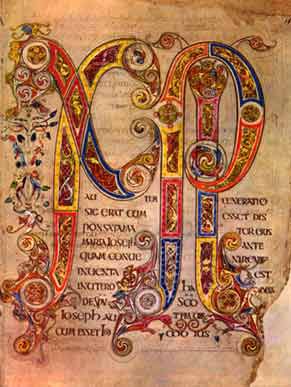 XPI
AU TEM GENERATIO
SIC ERAT CUM ESSET DIS
PONSATA MA TER EIUS
MARIA IOSEPH ANTE
QUAM CONUE NIREN
INUENTA EST
IN UTERO HA BENS
DE SPU SCO
IOSEPH AU TEM
CUM ESSET